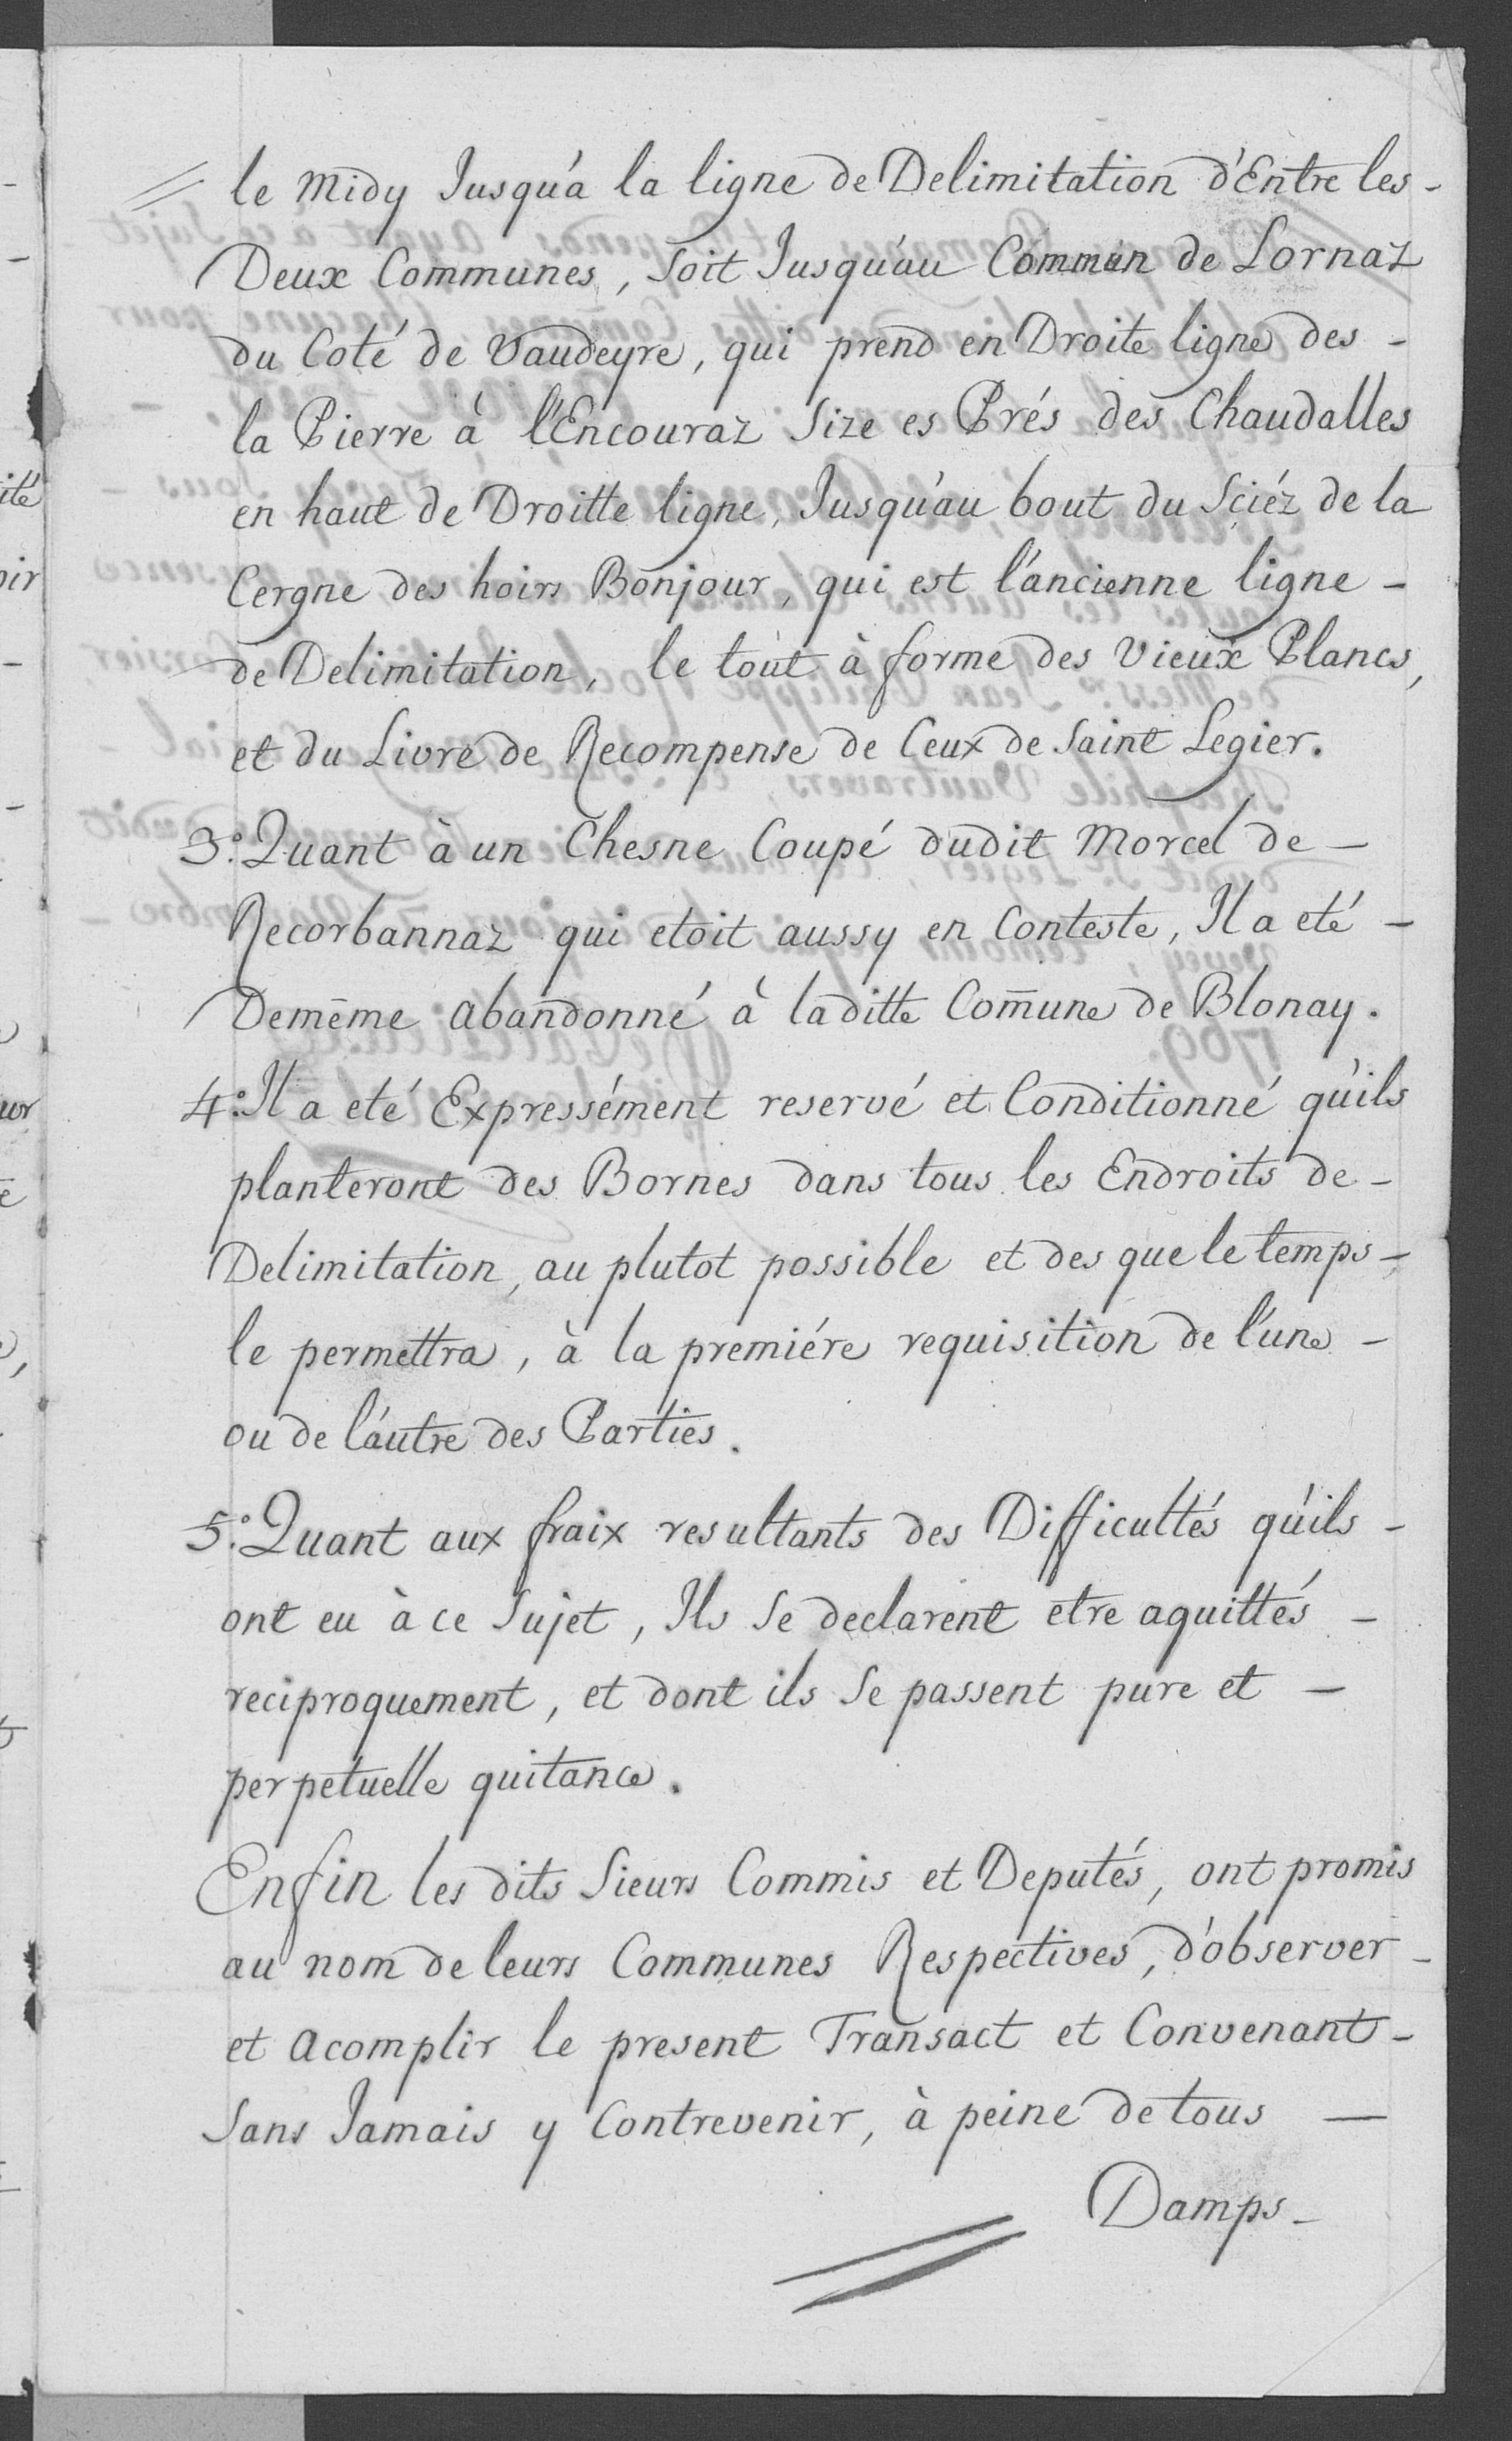 le Midy Jusqu'a la ligne de Delimitation d'Entre les -
Deux Communes, Soit Jusqu'au Commun de Lornaz
du Coté de Vaudeyre, qui prend en Droite ligne des -
la Pierre à l'Encouraz Size es Prés des Chaudalles
en haut de Droitte ligne, Jusqu'au bout du Sciéz de la
Cergne des hoirs Bonjour, qui est l'ancienne ligne -
de Delimitation, le tout à forme des Vieux Plancs,
et du Livre de Recompense de Ceux de Saint Legier.
3°. Quant à un Chesne Coupé dudit Morcel de -
Recorbannaz qui etoit aussy en Conteste, Il a eté -
Demême abandonné à laditte Com̃une de Blonay.
4°. Il a eté Expressément reservé et Conditionné qu'ils
planteront des Bornes dans tous les Endroits de -
Delimitation, au plutot possible et des que le temps -
le permettra, à la premiére requisition de l'une -
ou de l'autre des Parties.
5°. Quant aux fraix resultants des Difficultés qu'ils -
ont eu à ce Sujet, Ils Se declarent etre aquittés -
reciproquement, et dont ils Se passent pure et -
perpetuelle quitance.
Enfin les dits Sieurs Commis et Deputés, ont promis
au nom de leurs Communes Respectives, d'observer -
et acomplir le present Transact et Convenant -
Sans Jamais y Contrevenir, à peine de tous -
Damps -